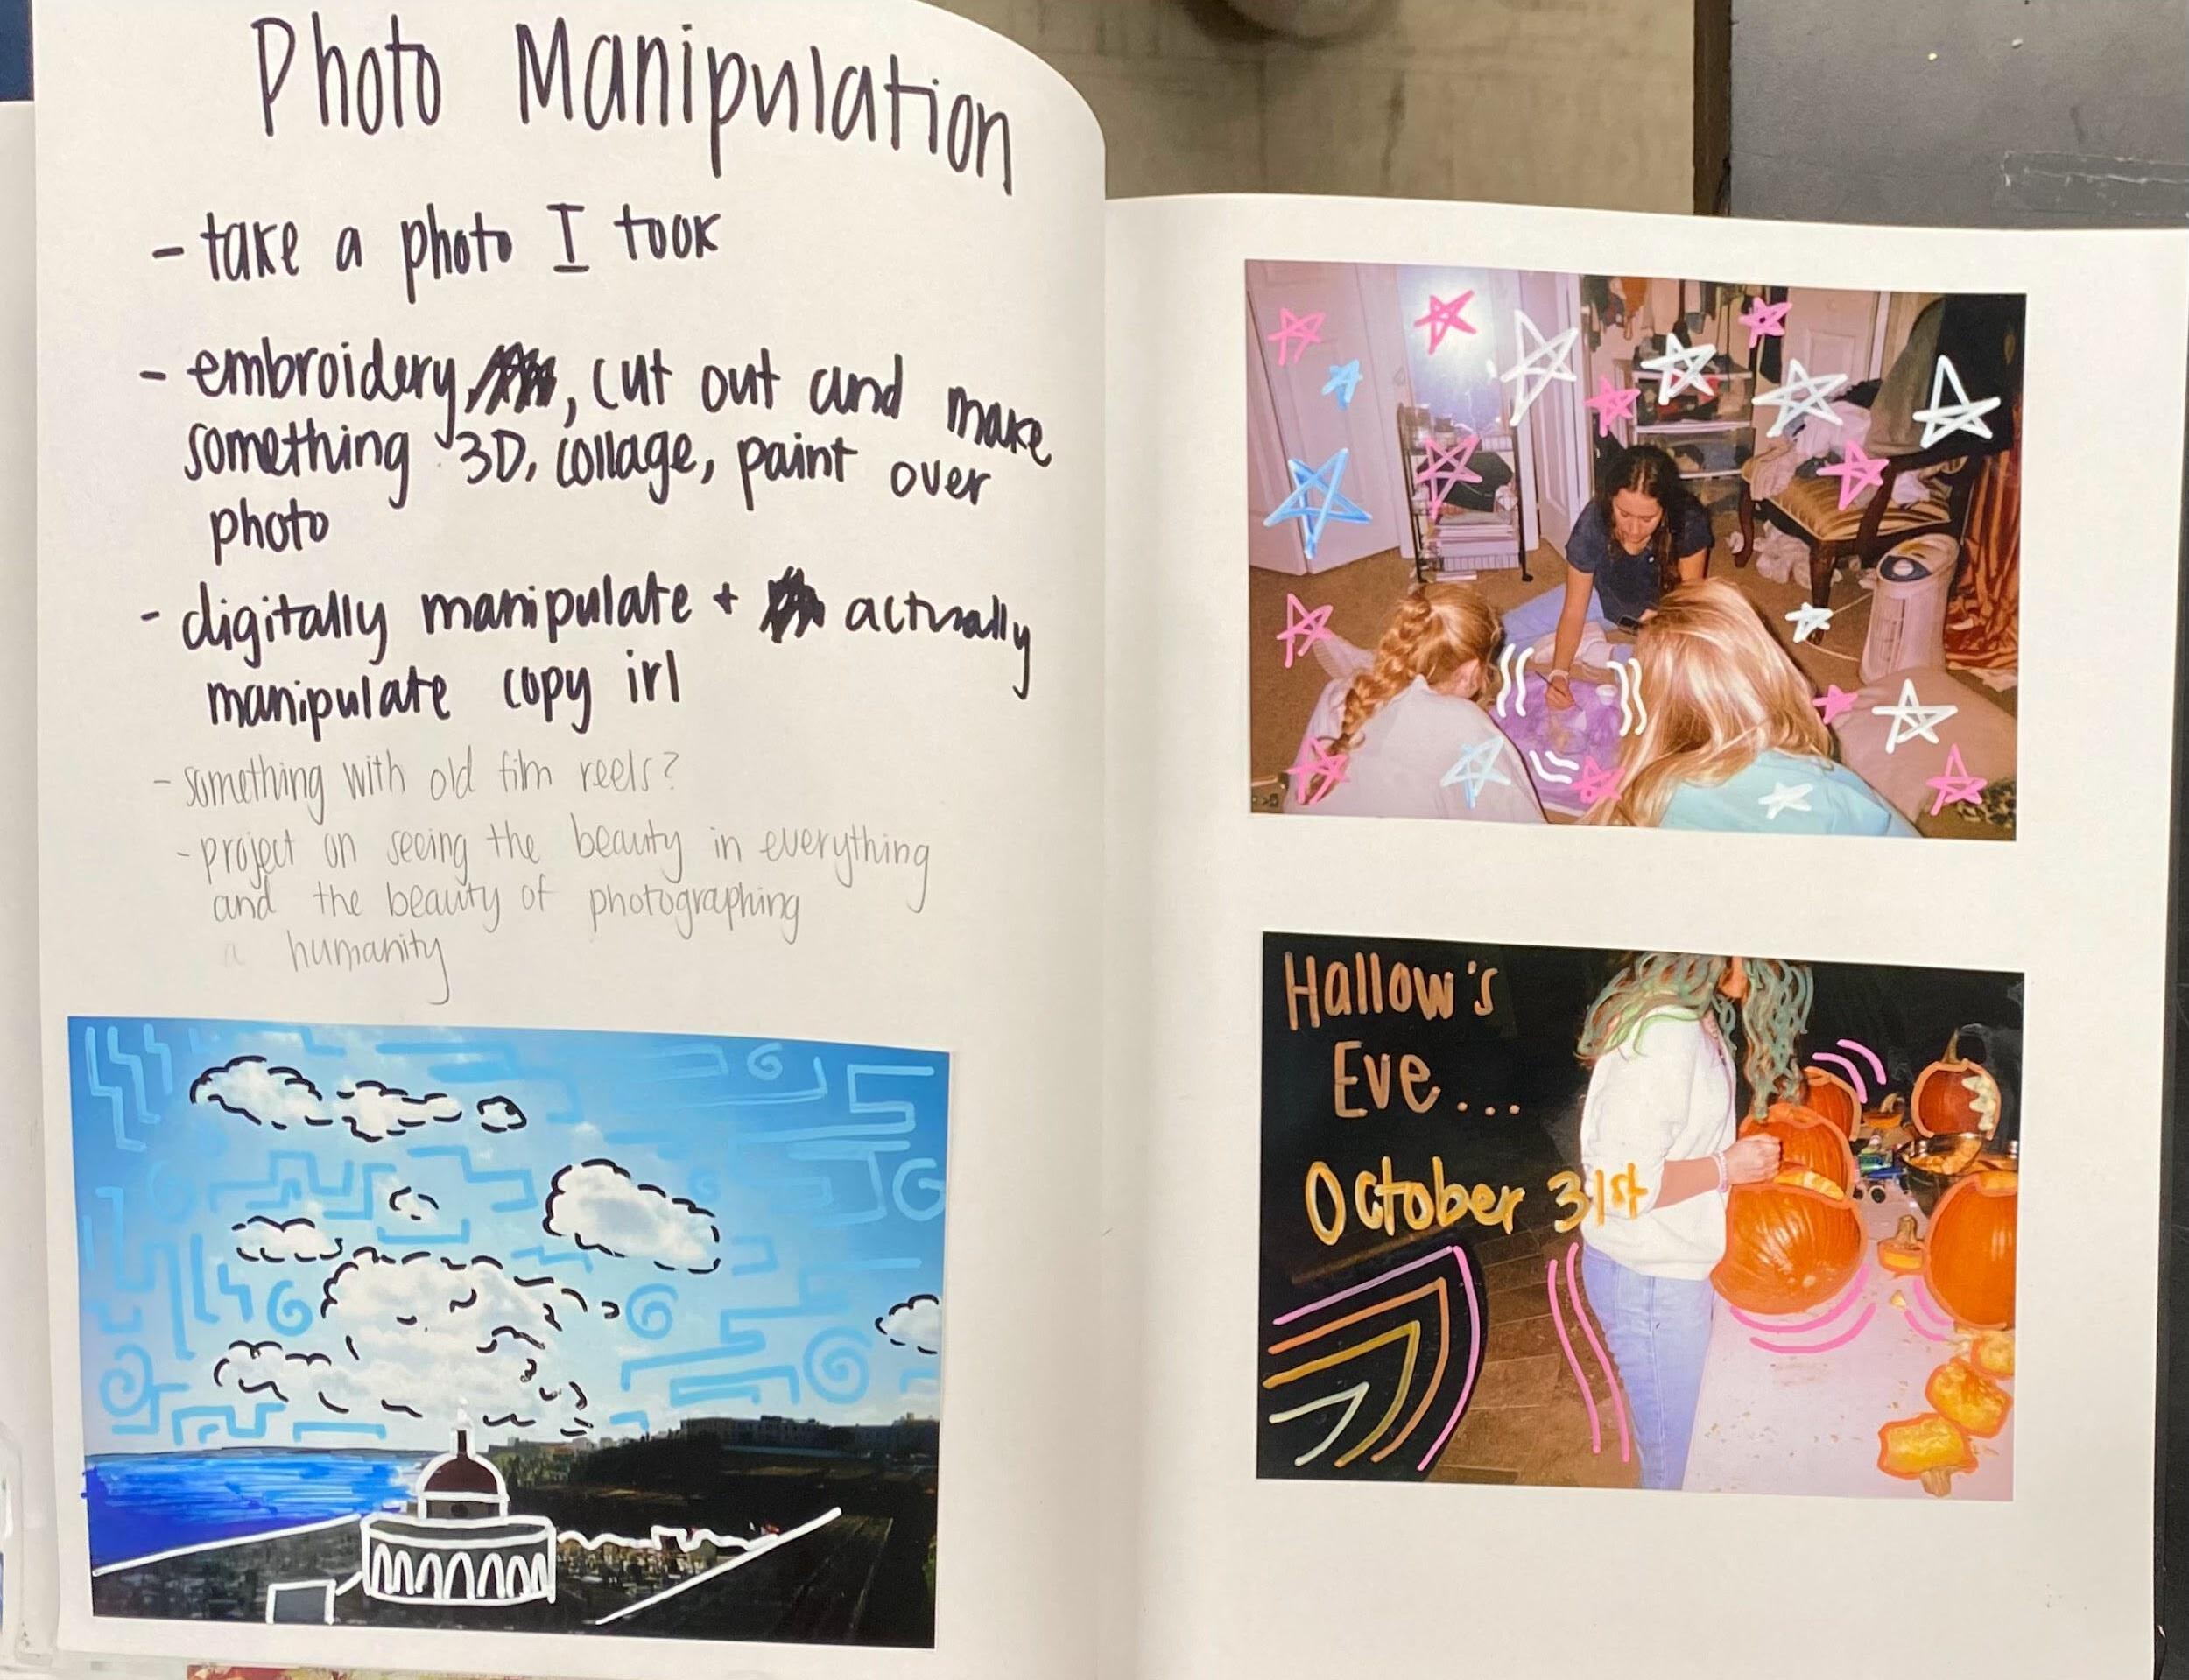 Photo Manipulation
- take a photo I took
- embroidery, cut out and make
something 3D, collage, paint over
photo
- digitally manipulate + actually
manipulate copy irl
- something with old film reels?
- project on seeing the beauty in everything
and the beauty of photographing
humanity
Hallow's
Eve...
October 31st